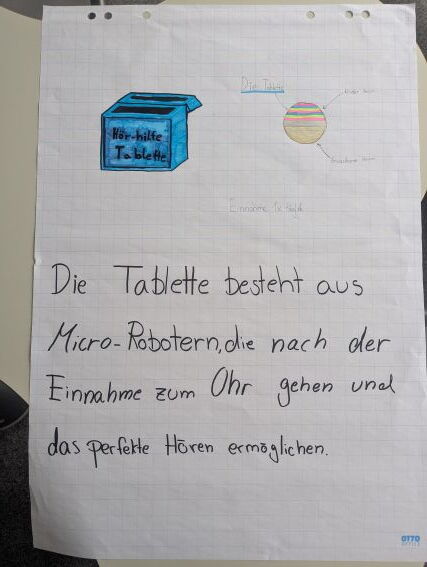 Die Tablette
Hör-hilfe
Tablette
Einnahme 1x täglich
Die Tablette besteht aus
Micro-Robotern, die nach der
Einnahme zum Ohr gehen und
das perfekte Hören ermöglichen.
OTTO